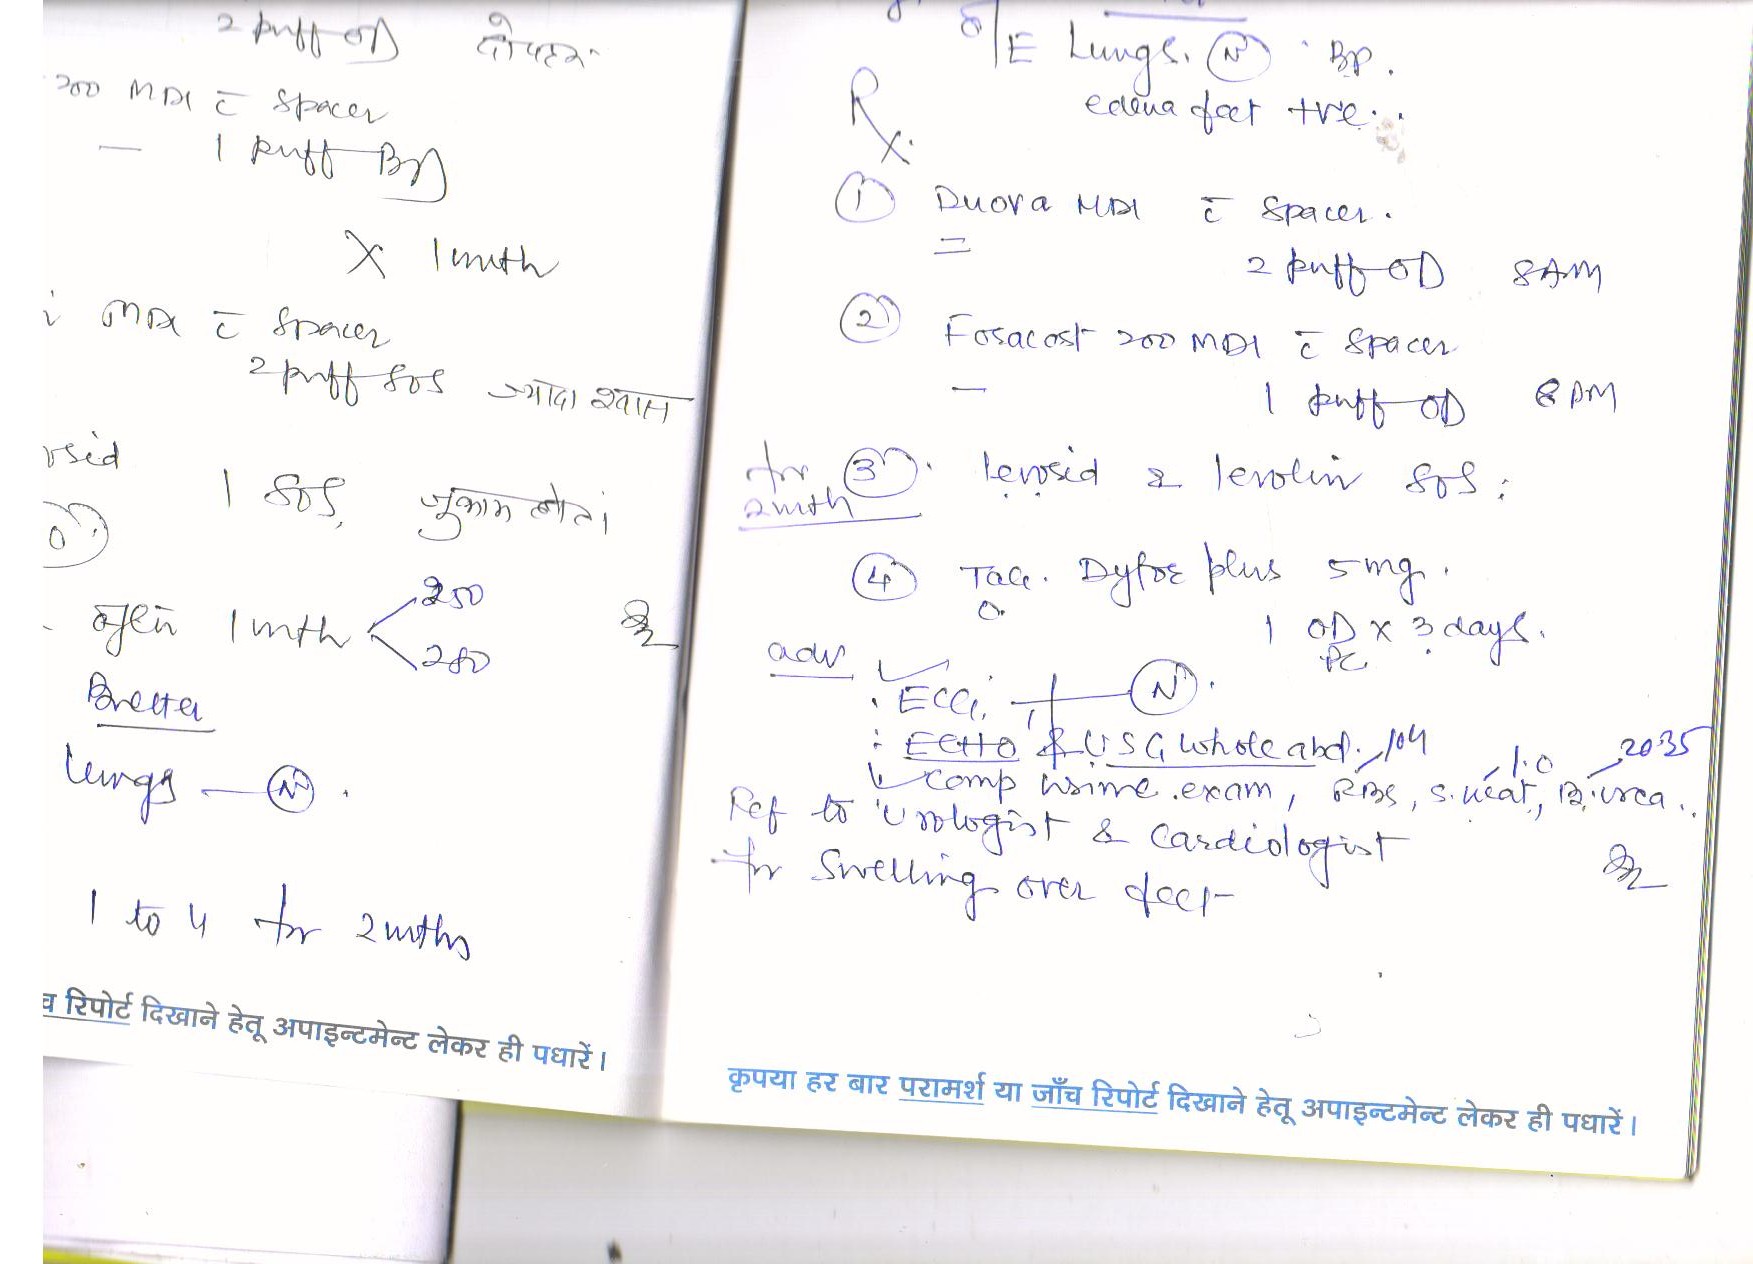 2 puff OD दोपहर
200 MDI c̄ Spacer
— 1 puff BD
X 1 mnth
MDI c̄ Spacer
2 puff SOS ज्यादा श्वास
1 SOS, जुकाम
1 mnth 250
280
Better
Lungs — N .
1 to 4 for 2 mths
च रिपोर्ट दिखाने हेतू अपाइन्टमेन्ट लेकर ही पधारें।
O/E Lungs. N BP.
edema feet +ve..
Rx.
1 Duova MDI c̄ Spacer.
2 puff OD 8AM
2 Fosacost 200 MDI c̄ Spacer
— 1 puff OD 8PM
for 2 mth 3 . levosid & levolin SOS :
4 Tab. Dyfor plus 5 mg.
1 OD x 3 days.
PC
adv
. ECG, N .
: ECHO & USG whole abd. 104 1.0 20.35
comp urine exam, RBS, S.creat, B.urea.
Ref to Urologist & Cardiologist
for Swelling over feet
कृपया हर बार परामर्श या जाँच रिपोर्ट दिखाने हेतू अपाइन्टमेन्ट लेकर ही पधारें।